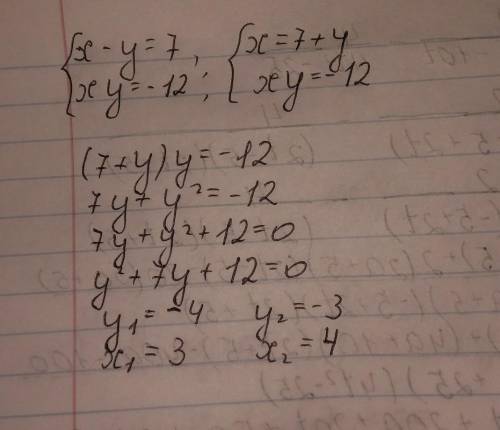 {x - y = 7, {x = 7 + y
{xy = -12; {xy = -12
(7+y)y = -12
7y + y² = -12
7y + y² + 12 = 0
y² + 7y + 12 = 0
y₁ = -4 y₂ = -3
x₁ = 3 x₂ = 4